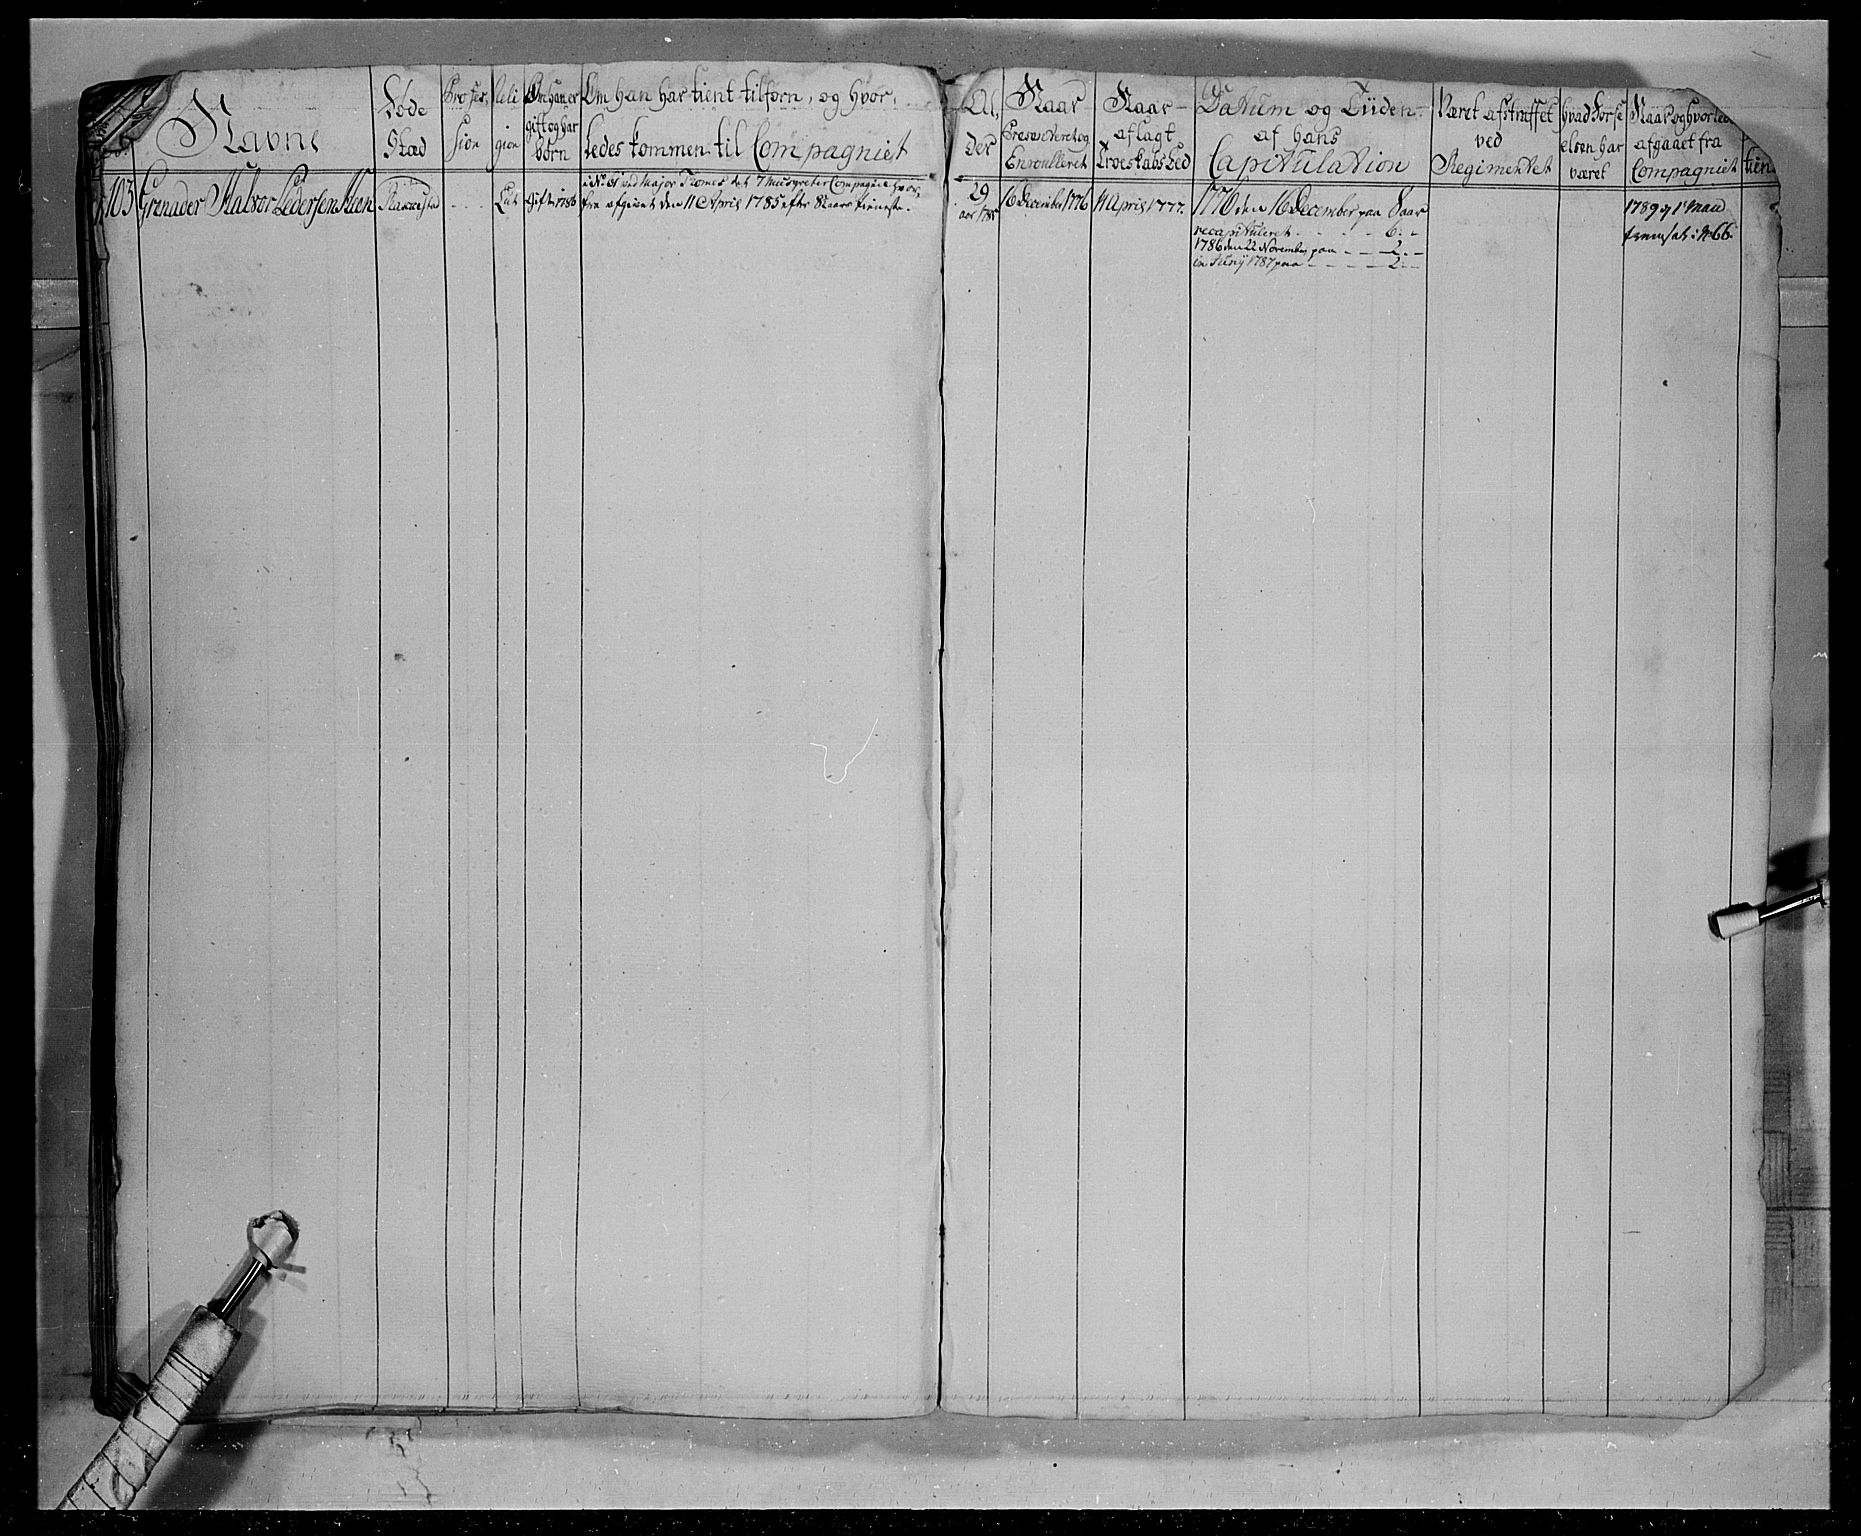 Navne
Føde
Stæd
Profes
sion
Reli
gion
Om han er
gift og har
børn
Om han har tient tilforn, og hvor
ledes kommen til Compagniet
Al
der
Naar
Presenteret og
Enroulleret
Naar
aflagt
Troeskabs Eed
Datum og Tiiden
af hans
Capitulation
Været afstraffet
ved
Regimentet
hvad Forse
elsen har
været
Naar og hvorled
afgaaet fra
Compagniet
tien
103
Grenader Halvor Pedersen Steen
Rakkestad
Lut
Gift 1786
No 61 ved Major Thomes det 7 Musqveter Compagnie hvor
fra afgivet den 11 April 1785 efter 8 aars tieneste.
29
aar 1785
16 December 1776
11 April 1777.
1776 den 16 December paa 8 aar
recapituleret - - - - - 6. -
1786 den 22 November paa - - - 2. -
in Junij 1787 paa - - - - 2. -
1789 q 1 Maii
fremsat i No 66.